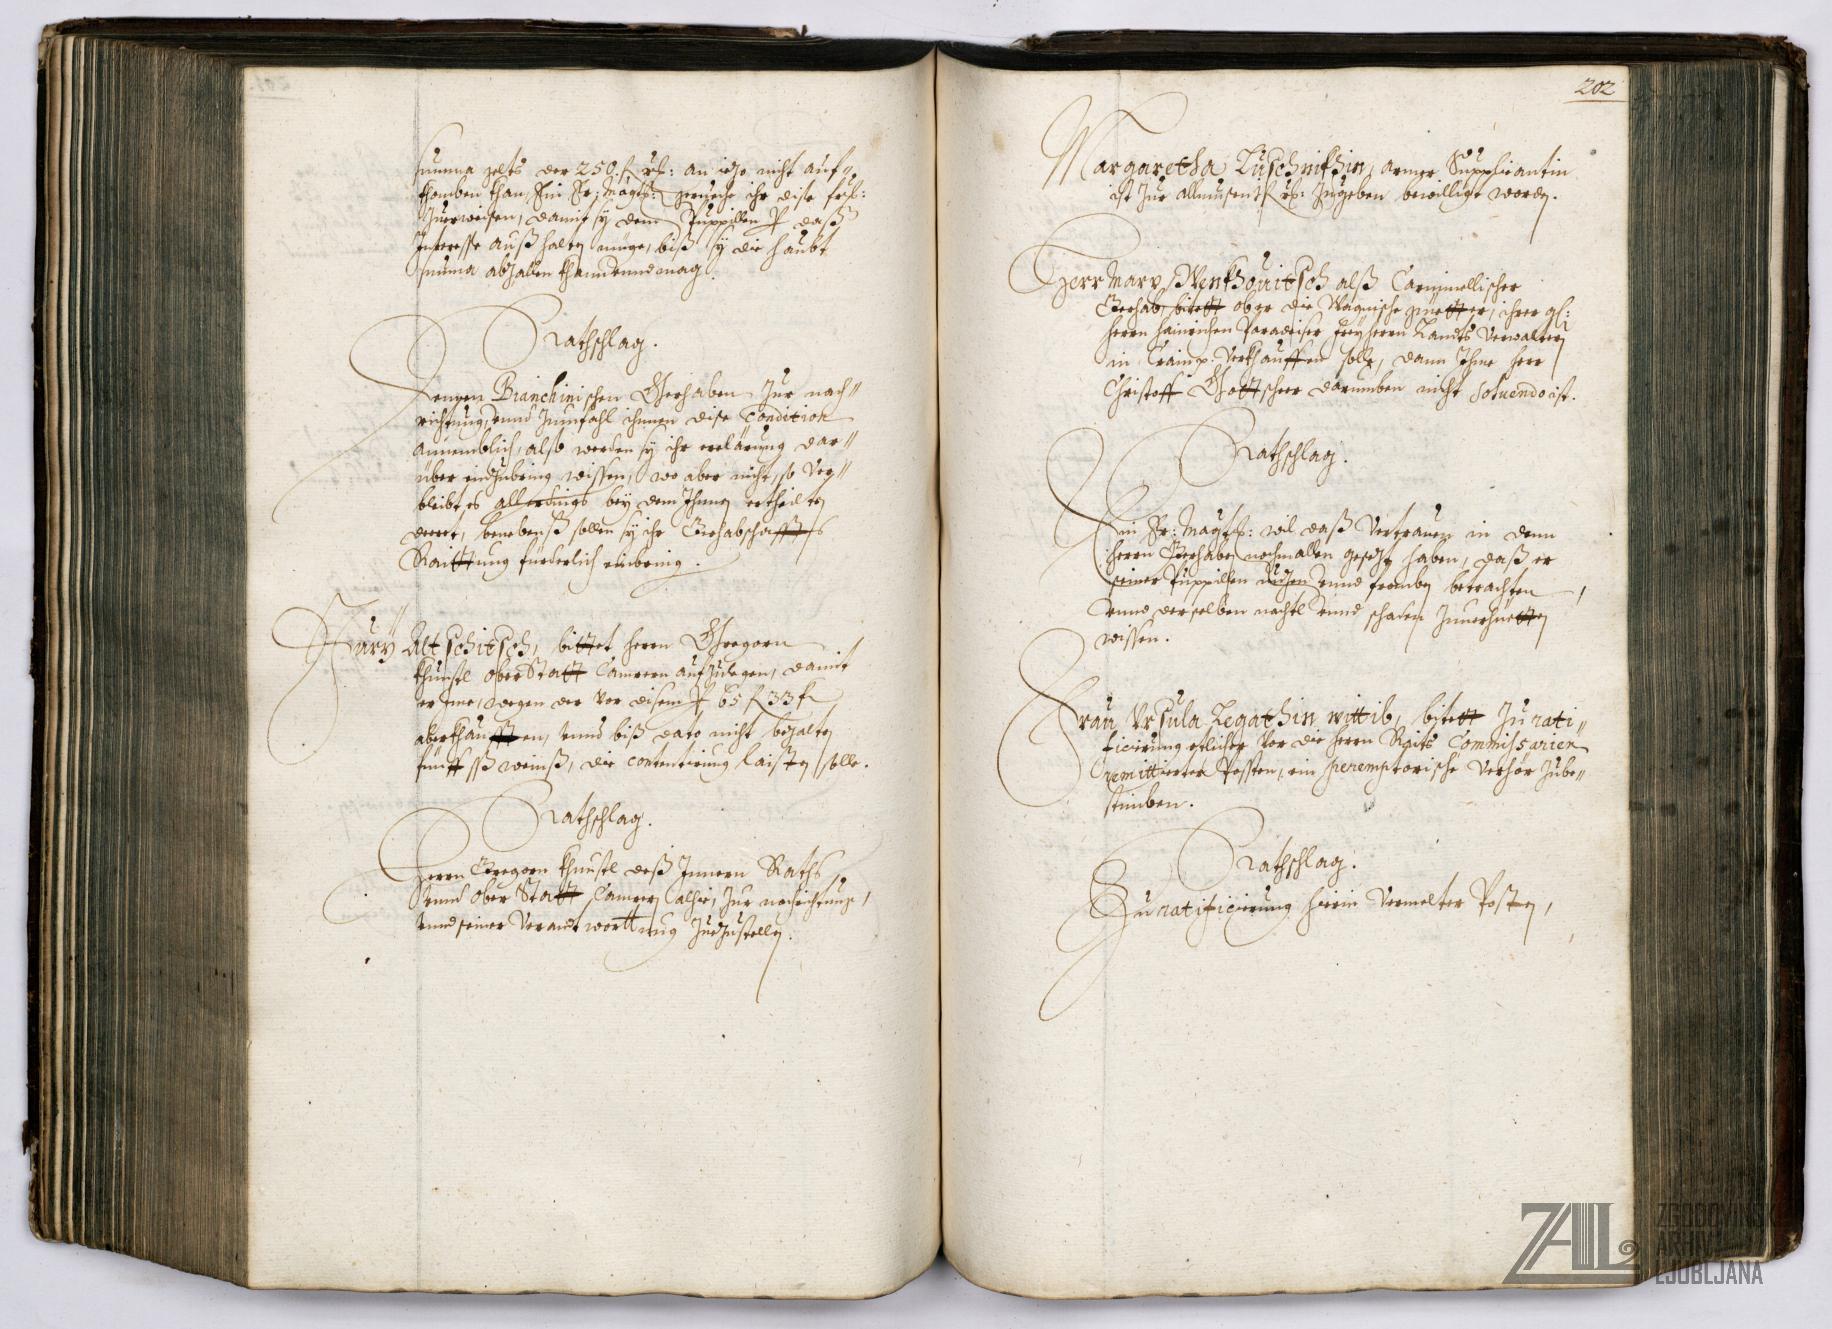 summa gelts der 250 f. rh: an iezo nicht auf-
khomben khan, Ein Er: Magts: geruche ihr dise
Zuerweisen, damit sy dem Puppillen daß
Interesse außhalten müge, biß sy die haubt
summa abzallen khan vnnd mag.
Rathschlag.
Denen Bianchinischen Gerhaben Zur nach-
richtung, vnnd Zumfahl ihnnen dise Condition
annemblich, also werden sy ihr erclärung dar-
über einzubring wissen, wo aber nicht, so ver-
bleibt es allerdings bey dem Ihnnen ertheilten
decret, benebenß sollen sy ihr Gerhabschaffts
Raittung fürderlich einbringen.
Jury Altschitsch, bittet herrn Gregorn
khunstl Ober Statt Camrern aufzulegen, damit
er ime, wegen der vor disem 65 f 33 k
aberkhaufften, vnnd biß dato nicht bezalten
fünff ß weinß, die contentirung laisten solle.
Rathschlag.
Herrn Gregorn khunstl deß Innern Raths
vnnd Ober Statt Camrer alhie, Zur nachrichtung,
vnnd seiner Verantworttung Zuezustellen.
202
Margaretha Luschnikhin, armer Supplicantin
ist Zur allmusen rh: Zugeben bewilligt worden.
Herr Marx Wenkhouitsch alß Carminellischer
Gerhab, bitett ober die Wagnische güetter, ihrer gl:
herrn hainrichen Paradeiser freyherrn Landts Verwaltern
in Crain verkhauffen solle, dann Ihme herr
Christoff Gottscheer darumben nicht soluendo ist.
Rathschlag.
Ein Er: Magts: wil daß Vertrauen in denn
herrn Gerhaben nochmallen gesezt haben, daß er
seiner Puppillen nuzen vnnd fromben betrachten,
vnnd derselben nachtl vnnd schaden Zuuerhüetten
wissen.
Frau Vrsula Legathin wittib, bitett Zu rati-
ficierung etlicher vor die herrn Raits Commissarien
remittierten Posten, ein peremptorische Verhör Zube-
stimben.
Rathschlag.
Zu ratificierung hierin vermelter Posten,
ZAL
ZGODOVINSKI
ARHIV
LJUBLJANA